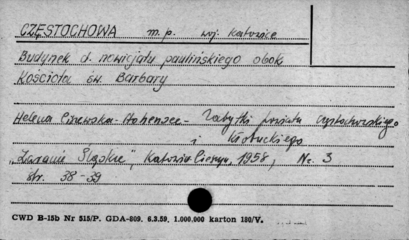 CZĘSTOCHOWA m.p. woj. Katowice
Budynek d. nowicjatu paulińskiego obok
Kościoła św. Barbary
Helena - Hohensee - Zabytki powiatu częstochowskiego
i kłobuckiego
"Zaranie Śląskie", Katowice Cieszyn, 1958, Nr. 3
str. 38-39
CWD B-15b Nr 515/P. GDA-809. 6.3.59. 1.000.000 karton 180/V.